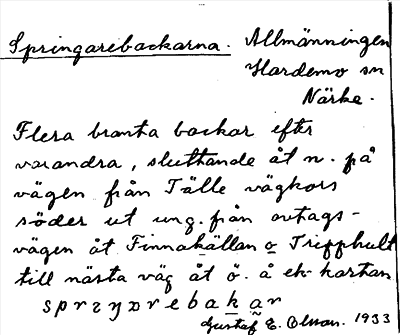 Springarebackarna. Allmänningen
Hardemo sn
Närke.
Flera branta backar efter
varandra, sluttande åt n. på
vägen från Tälle vägkors
söder ut ung. från avtags-
vägen åt Finnakällan o Tripphult
till nästa väg åt ö. å ek kartan
sprzyŋrebakar
Gustaf E. Olson. 1933